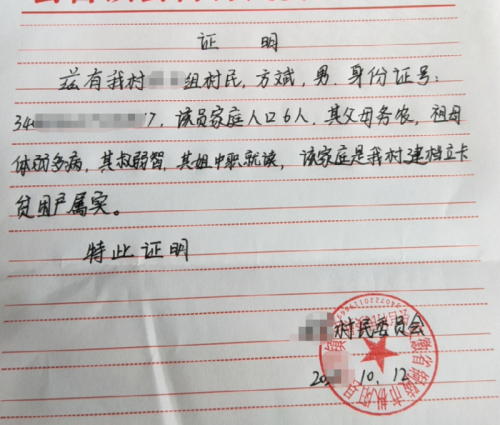 证 明
兹有我村组村民，方斌，男，身份证号：
34 17，该员家庭人口6人，其父母务农，祖母
体弱多病，其叔弱智，其姐中职就读，该家庭是我村建档立卡
贫困户属实。
特此证明
村民委员会
20 .10.12